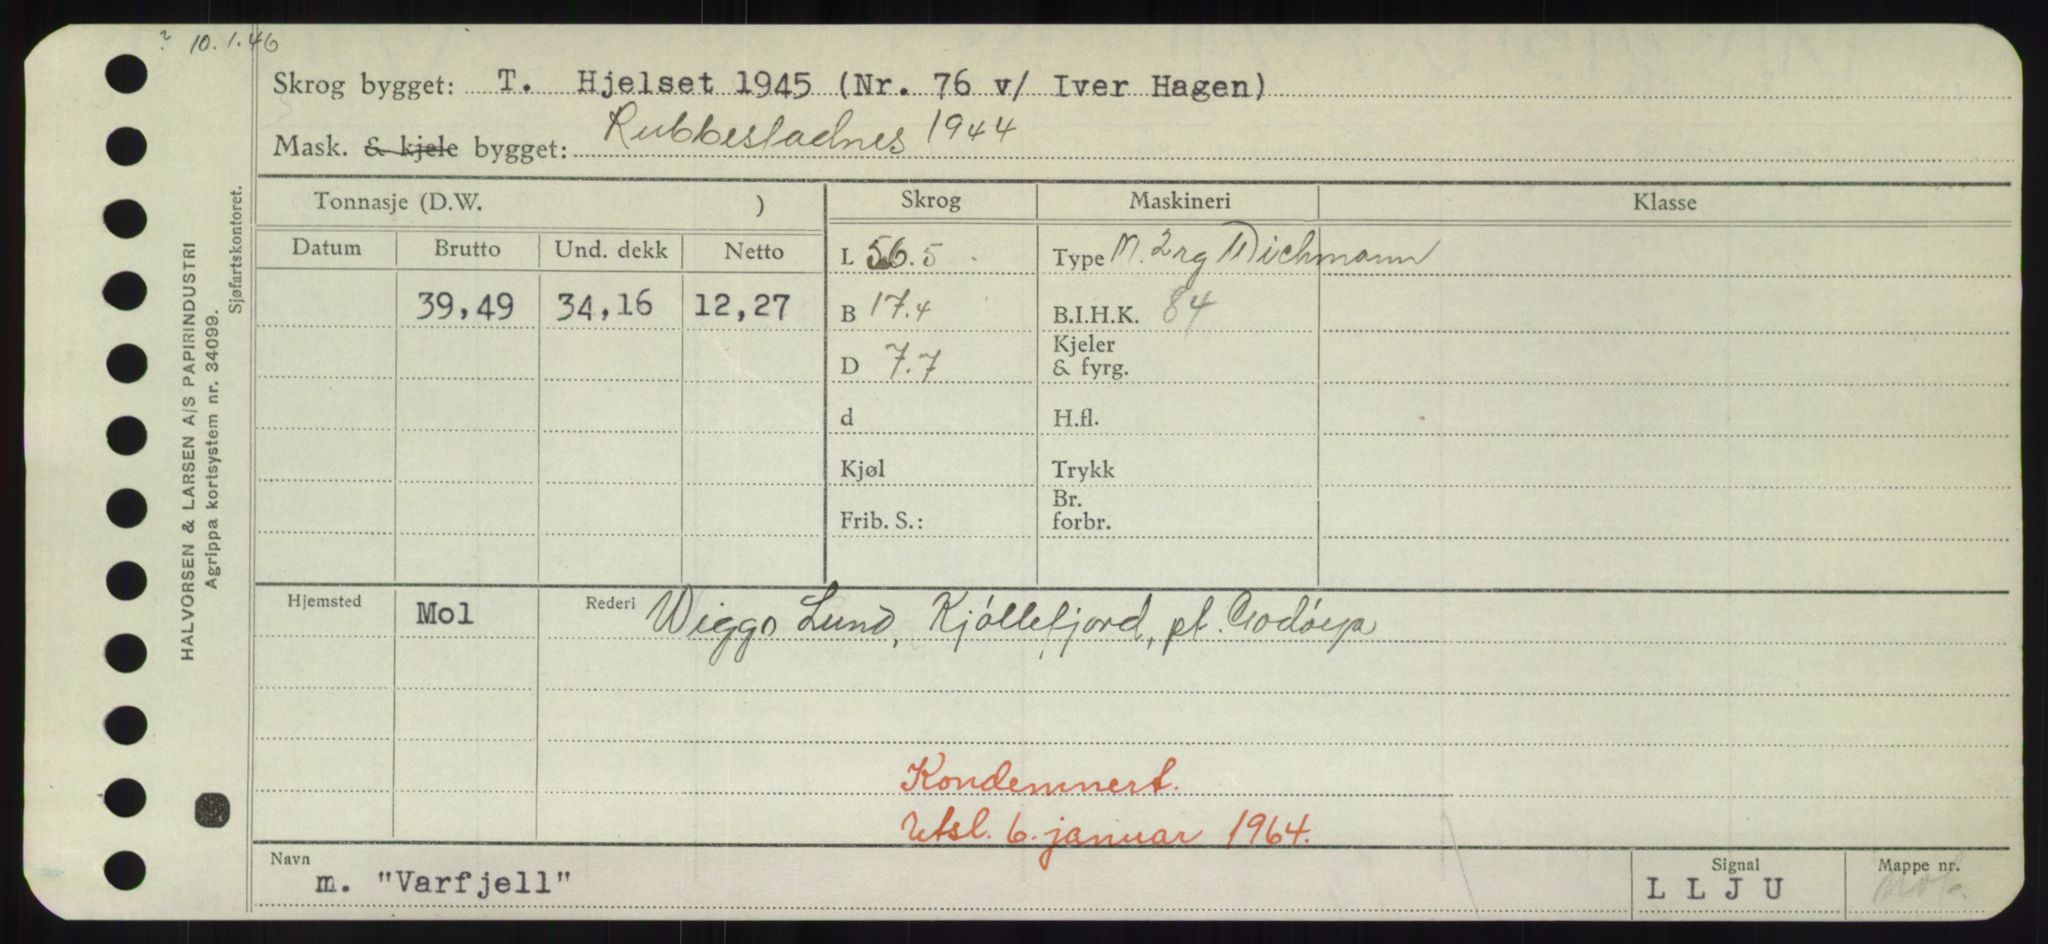 ? 10.1.46
Skrog bygget: T. Hjelset 1945 (Nr. 76 v/ Iver Hagen)
Mask. & kjele bygget: Rubbestadnes 1944
Tonnasje (D.W. )
Skrog
Maskineri
Klasse
Datum
Brutto
Und. dekk
Netto
L 56.5
Type M. 2rg Wichmann
39,49
34,16
12,27
B 17.4
B.I.H.K. 84
D 7.7
Kjeler
& fyrg.
d
H.fl.
Kjøl
Trykk
Br.
forbr.
Frib. S.:
Hjemsted
Mol
Rederi Wiggo Lund, Kjöllefjord, pt.
Kondemnert.
Utsl. 6. januar 1964.
Navn
m. "Varfjell"
Signal
L L J U
Mappe nr.
HALVORSEN & LARSEN A/S PAPIRINDUSTRI
Agrippa kortsystem nr. 34099.
Sjøfartskontoret.